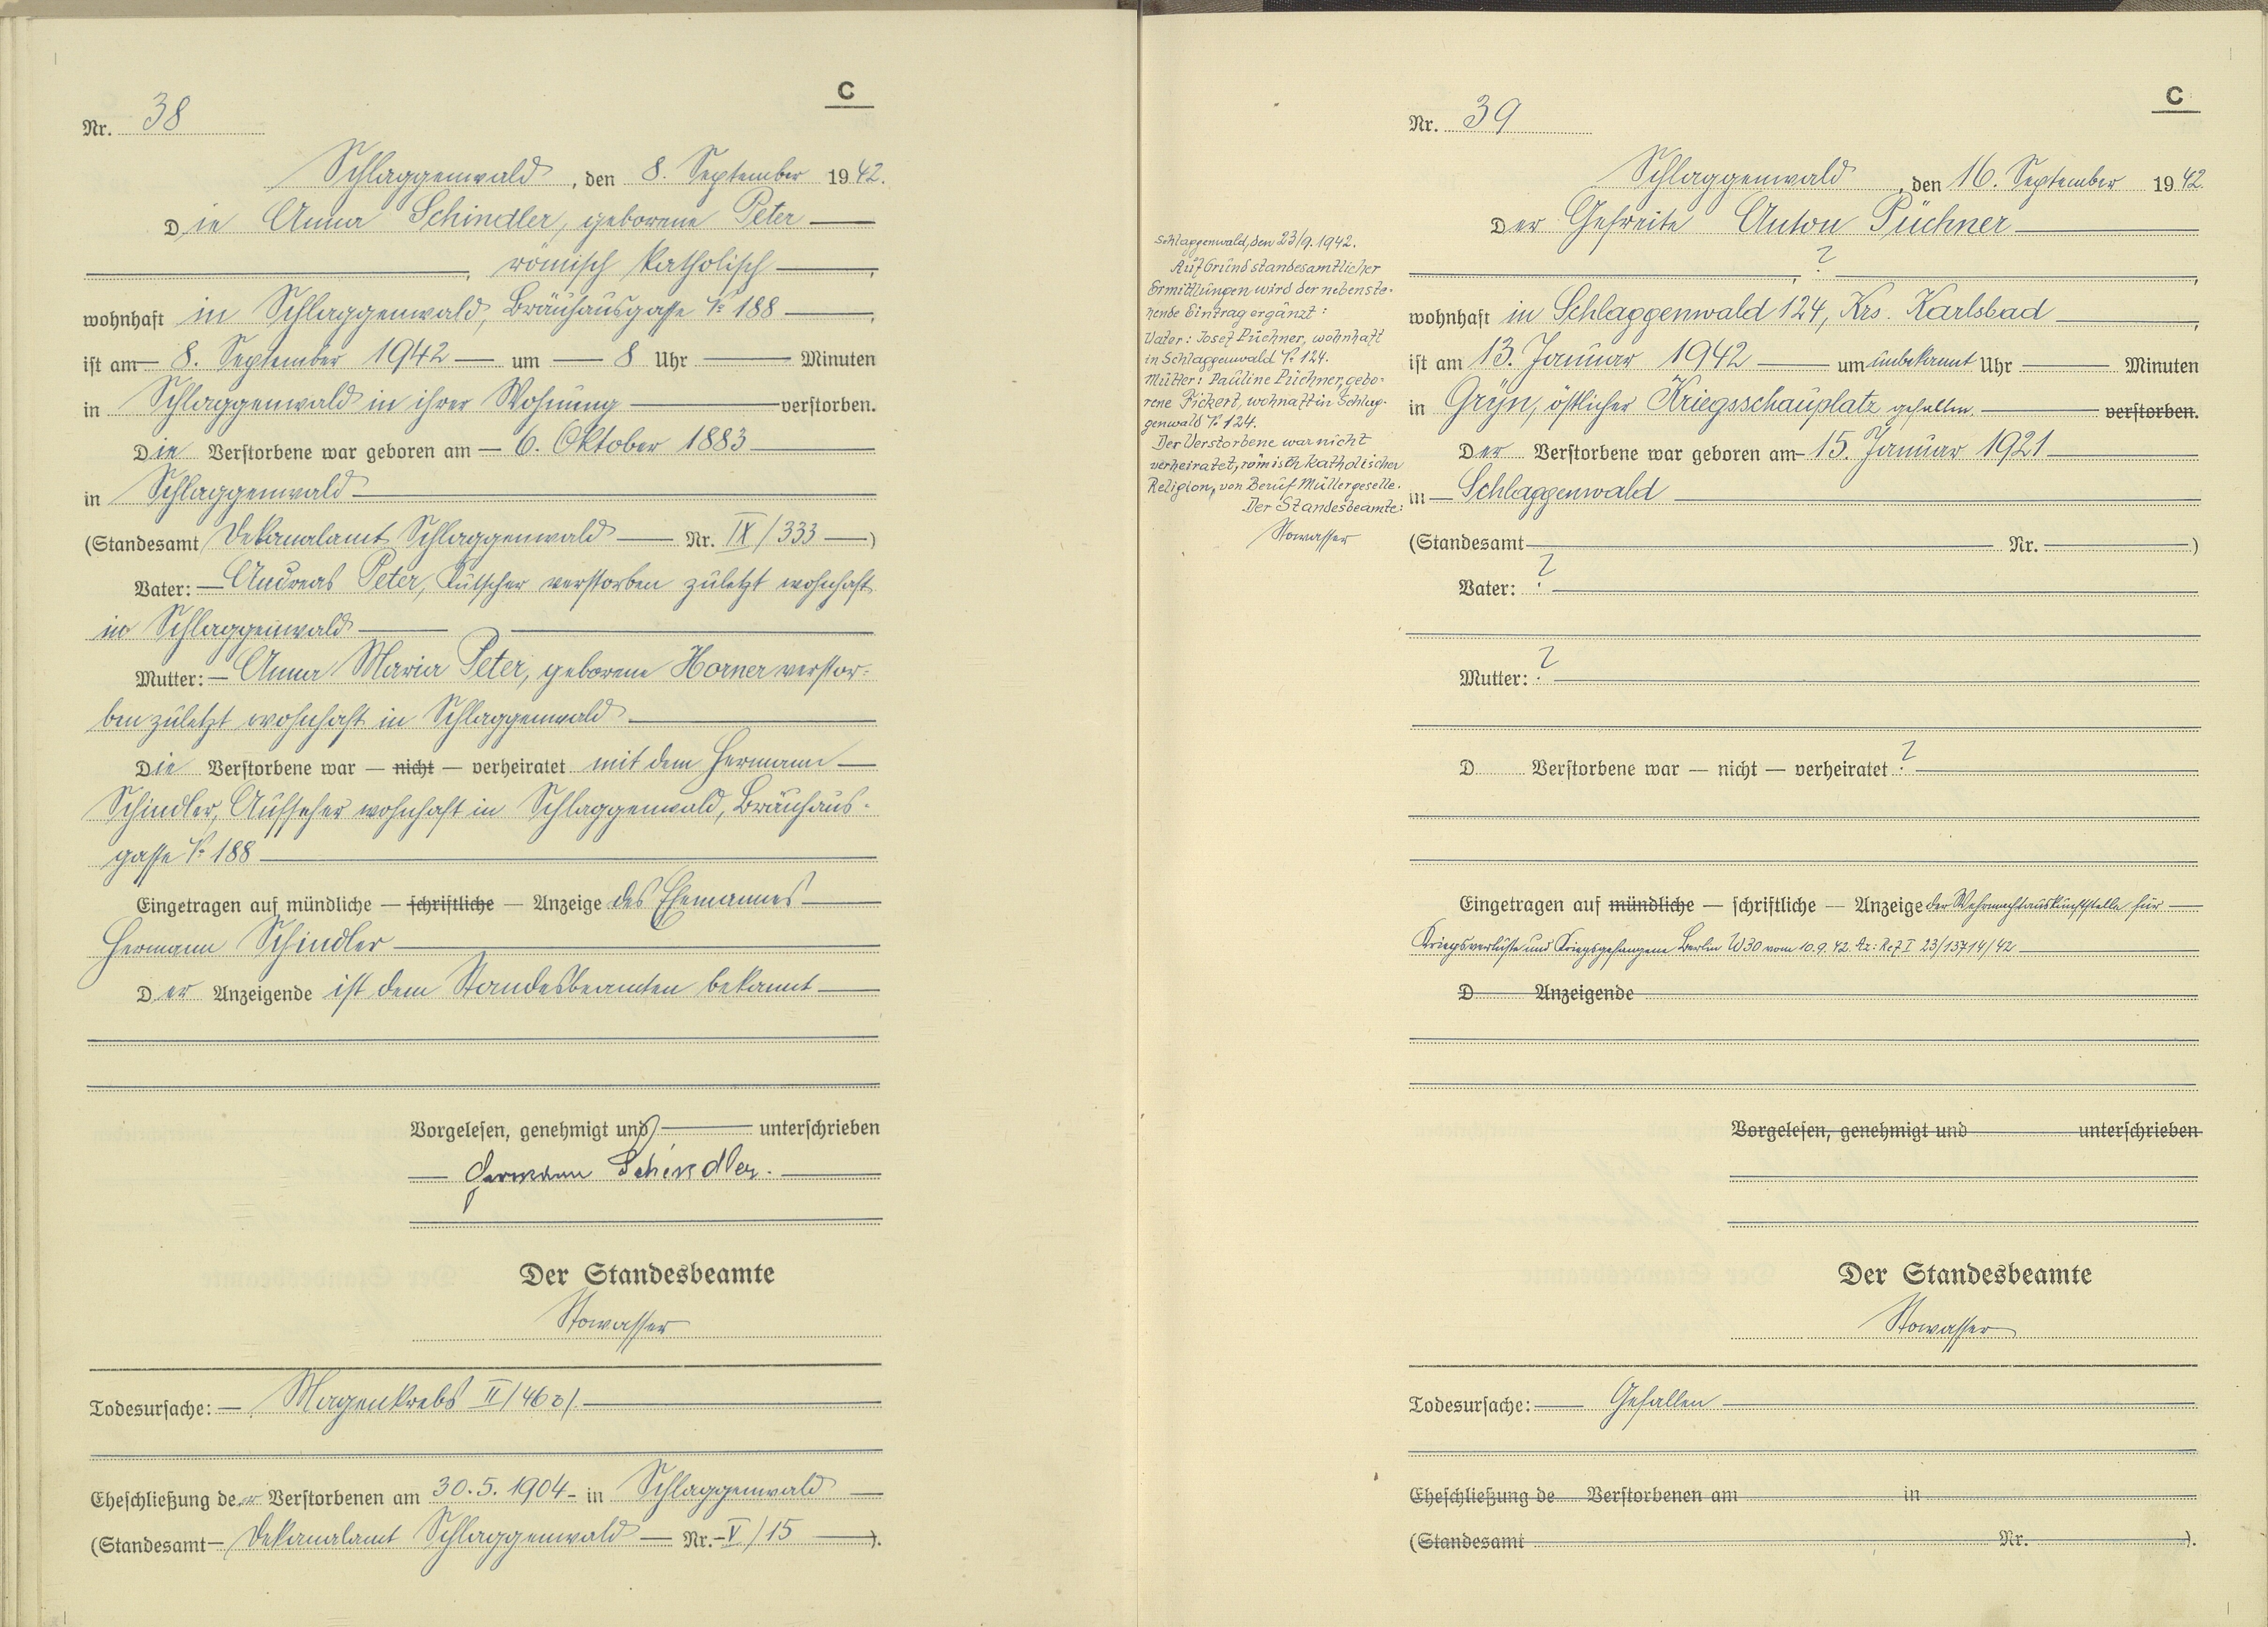 C
Nr. 38
Schlaggenwald, den 8. September 1942.
Die Anna Schindler, geborene Peter
, römisch katholisch,
wohnhaft in Schlaggenwald, Bräuhausgasse № 188,
ist am 8. September 1942 um 8 Uhr Minuten
in Schlaggenwald in ihrer Wohnung verstorben.
Die Verstorbene war geboren am 6. Oktober 1883
in Schlaggenwald
(Standesamt Dekanalamt Schlaggenwald Nr. IX/333)
Vater: Andreas Peter, Kutscher verstorben zuletzt wohnhaft
in Schlaggenwald
Mutter: Anna Maria Peter, geborene Horner verstor-
ben zuletzt wohnhaft in Schlaggenwald
Die Verstorbene war — nicht — verheiratet mit dem Hermann
Schindler, Aufseher wohnhaft in Schlaggenwald, Bräuhaus-
gasse № 188
Eingetragen auf mündliche — schriftliche — Anzeige des Ehemannes
Hermann Schindler
Der Anzeigende ist dem Standesbeamten bekannt
Vorgelesen, genehmigt und unterschrieben
Hermann Schindler.
Der Standesbeamte
Stowasser
Todesursache: Magenkrebs II/46
Eheschließung der Verstorbenen am 30.5.1904 in Schlaggenwald
(Standesamt Dekanalamt Schlaggenwald Nr. V/15).
Schlaggenwald, den 23/9.1942.
Auf Grund standesamtlicher
Ermittlungen wird der nebenste-
hende Eintrag ergänzt:
Vater: Josef Püchner, wohnhaft
in Schlaggenwald № 124.
Mutter: Pauline Püchner, gebo-
rene Pickert, wohnaft in Schlag-
genwald № 124.
Der Verstorbene war nicht
verheiratet, römisch katholischer
Religion, von Beruf Müllergeselle.
Der Standesbeamte:
Stowasser
C
Nr. 39
Schlaggenwald, den 16. September 1942.
Der Gefreite Anton Püchner
, ?,
wohnhaft in Schlaggenwald 124, Krs. Karlsbad,
ist am 13. Januar 1942 um unbekannt Uhr Minuten
in Grijn, östlicher Kriegsschauplatz gefallen verstorben.
Der Verstorbene war geboren am 15. Januar 1921
in Schlaggenwald
(Standesamt Nr. )
Vater: ?
Mutter: ?
D Verstorbene war — nicht — verheiratet ?
Eingetragen auf mündliche — schriftliche — Anzeige der Wehrmachtauskunftstelle für
Kriegsverluste und Kriegsgefangene Berlin W30 vom 10.9.42. Az: Ref I 23/13714/42
D Anzeigende
Vorgelesen, genehmigt und unterschrieben
Der Standesbeamte
Stowasser
Todesursache: Gefallen
Eheschließung de Verstorbenen am in
(Standesamt Nr. ).